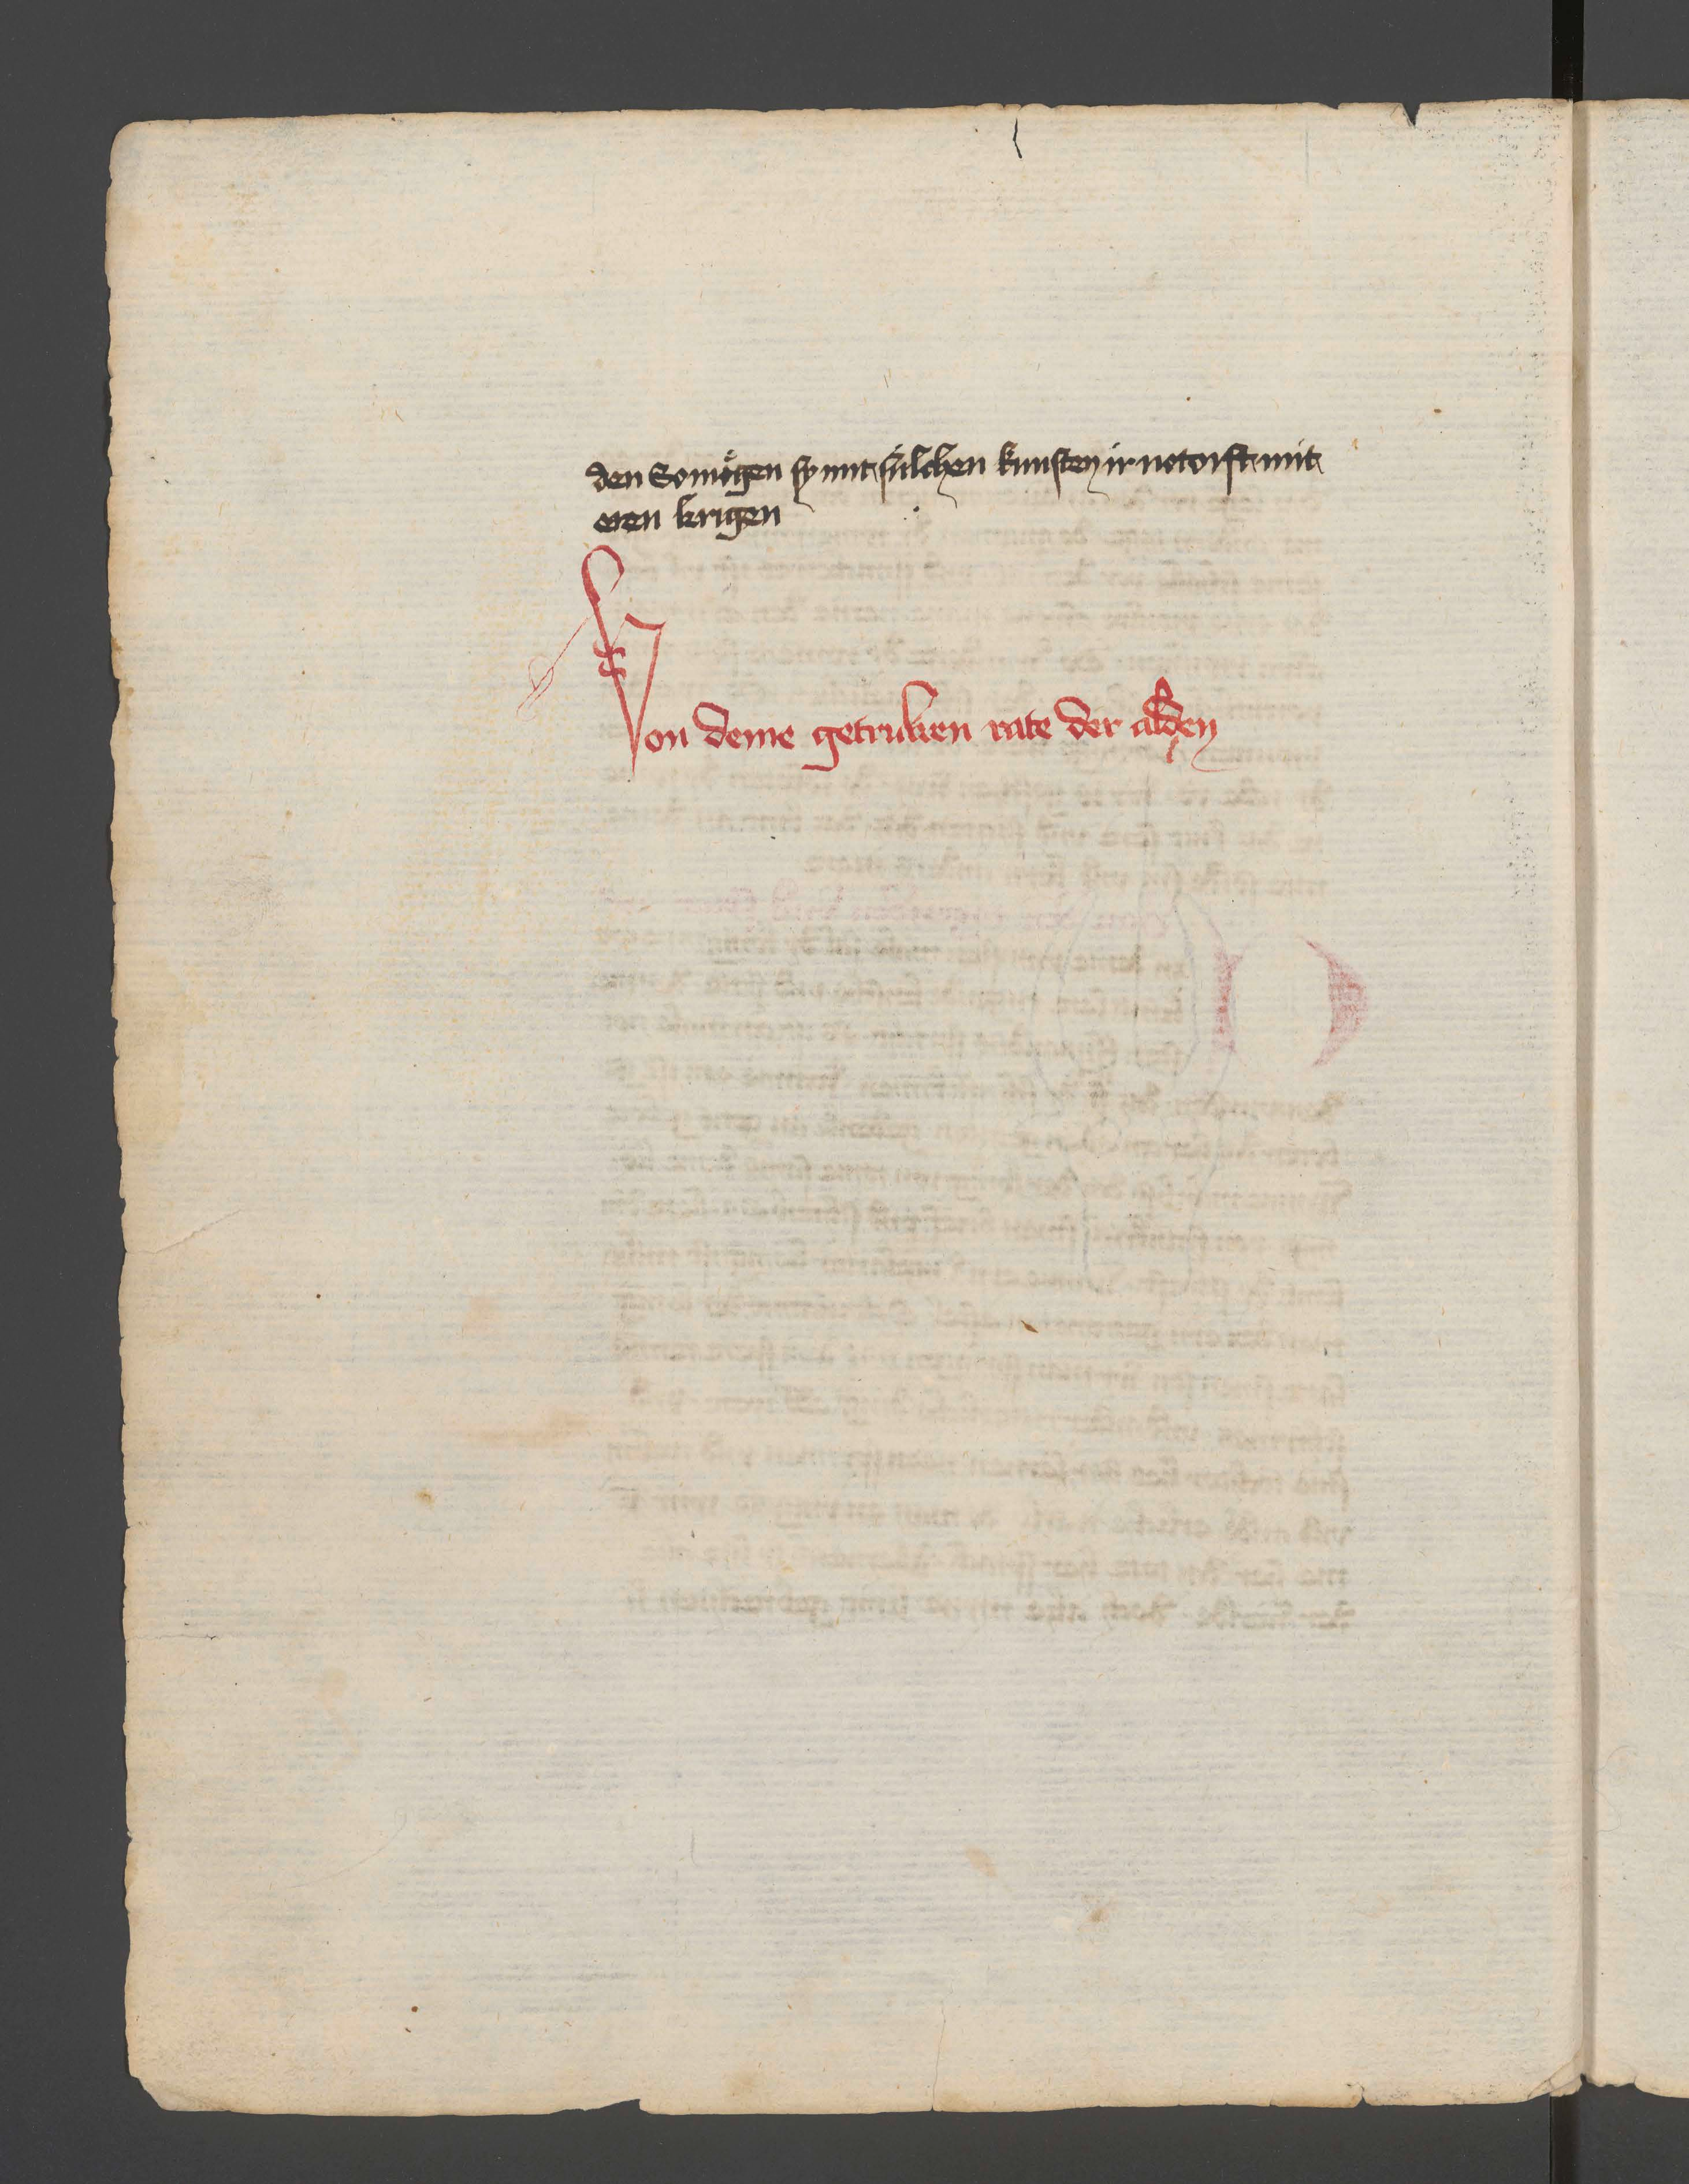 den So mögen sy mit sulchen kunsten ir notorft mit
eren krigen
Von deme getruwen rate der alden